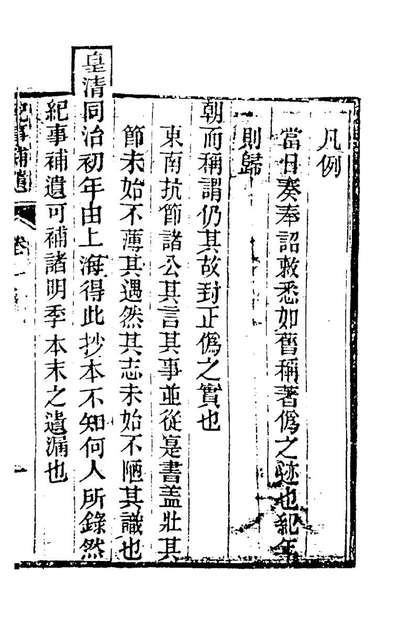 凡例
當日奏奉詔敕悉如舊稱著僞之跡也紀年
則歸
朝而稱謂仍其故封正僞之實也
東南抗節諸公其言其事並從是書蓋壯其
節未始不薄其遇然其志未始不陋其識也
皇清同治初年由上海得此抄本不知何人所錄然
紀事補遺可補諸明季本末之遺漏也
紀事補遺 卷一 一